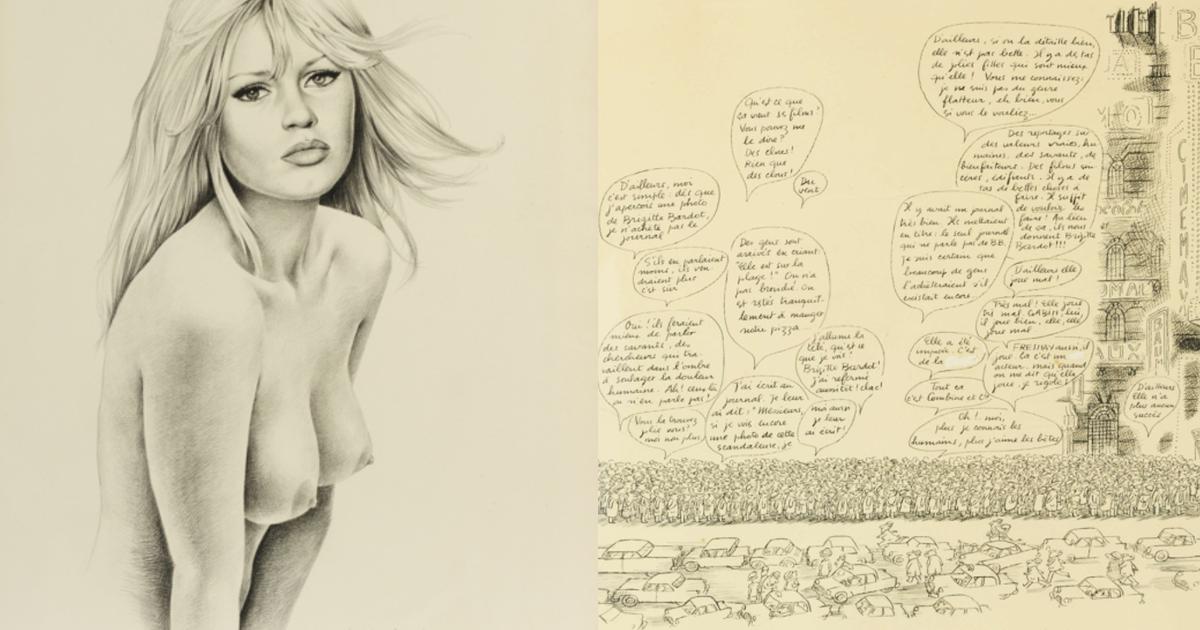 D'ailleurs, si on la détaille bien,
elle n'est pas belle. Il y a des tas
de jolies filles qui sont mieux
qu'elle ! Vous me connaissez :
je ne suis pas du genre
flatteur, eh bien, vous
si vous le vouliez...
Qu'est ce que
ça vaut ses films ?
Vous pouvez me
le dire ?
Des clous !
Rien que
des clous !
Du
vent
Des reportages sur
des valeurs vraies, hu
maines. des savants, de
bienfaiteurs. Des films sin-
cères, édifiants. Il y a de
tas de belles choses à
faire. Il suffit
de vouloir les
faire ! Au lieu
de ça, ils nous
donnent Brigitte
Bardot !!!
D'ailleurs, moi
c'est simple : dès que
j'aperçois une photo
de Brigitte Bardot,
je n'achète pas le
journal
Il y aurait un journal
très bien. Ils mettraient
en titre : le seul journal
qui ne parle pas de BB.
je suis certain que
beaucoup de gens
l'achèteraient s'il
existait encore.
S'ils en parlaient
moins, ils ven
draient plus
c'est sur
Des gens sont
arrivés en criant :
"Elle est sur la
plage !" On n'a
pas bronché. On
est restés tranquil-
lement à manger
notre pizza
D'ailleurs elle
joue mal !
Très mal ! Elle joue
très mal. GABIN, lui,
il joue bien, elle, elle
joue mal
Oui ! ils feraient
mieux de parler
des savants, des
chercheurs qui tra-
vaillent dans l'ombre
à soulager la douleur
humaine. Ah ! ceux-là
on n'en parle pas !
J'allume la
télé, qu'est ce
que je vois ?
Brigitte Bardot !
j'ai refermé
aussitôt ! clac !
Elle a été
imposée. C'est
de la
FRESNAY aussi, il
joue. Ça c'est un
acteur. mais quand
on me dit qu'elle
joue, je rigole !
J'ai écrit au
journal. Je leur
ai dit : "Messieurs,
si je vois encore
une photo de cette
scandaleuse, je
moi aussi
je leur
ai écrit !
Tout ça
c'est Combine et Cie
D'ailleurs
elle n'a
plus aucun
succès
Vous la trouvez
jolie vous ?
moi non plus
Oh ! moi,
plus je connais les
humains, plus j'aime les bêtes
CINEMA
BAR